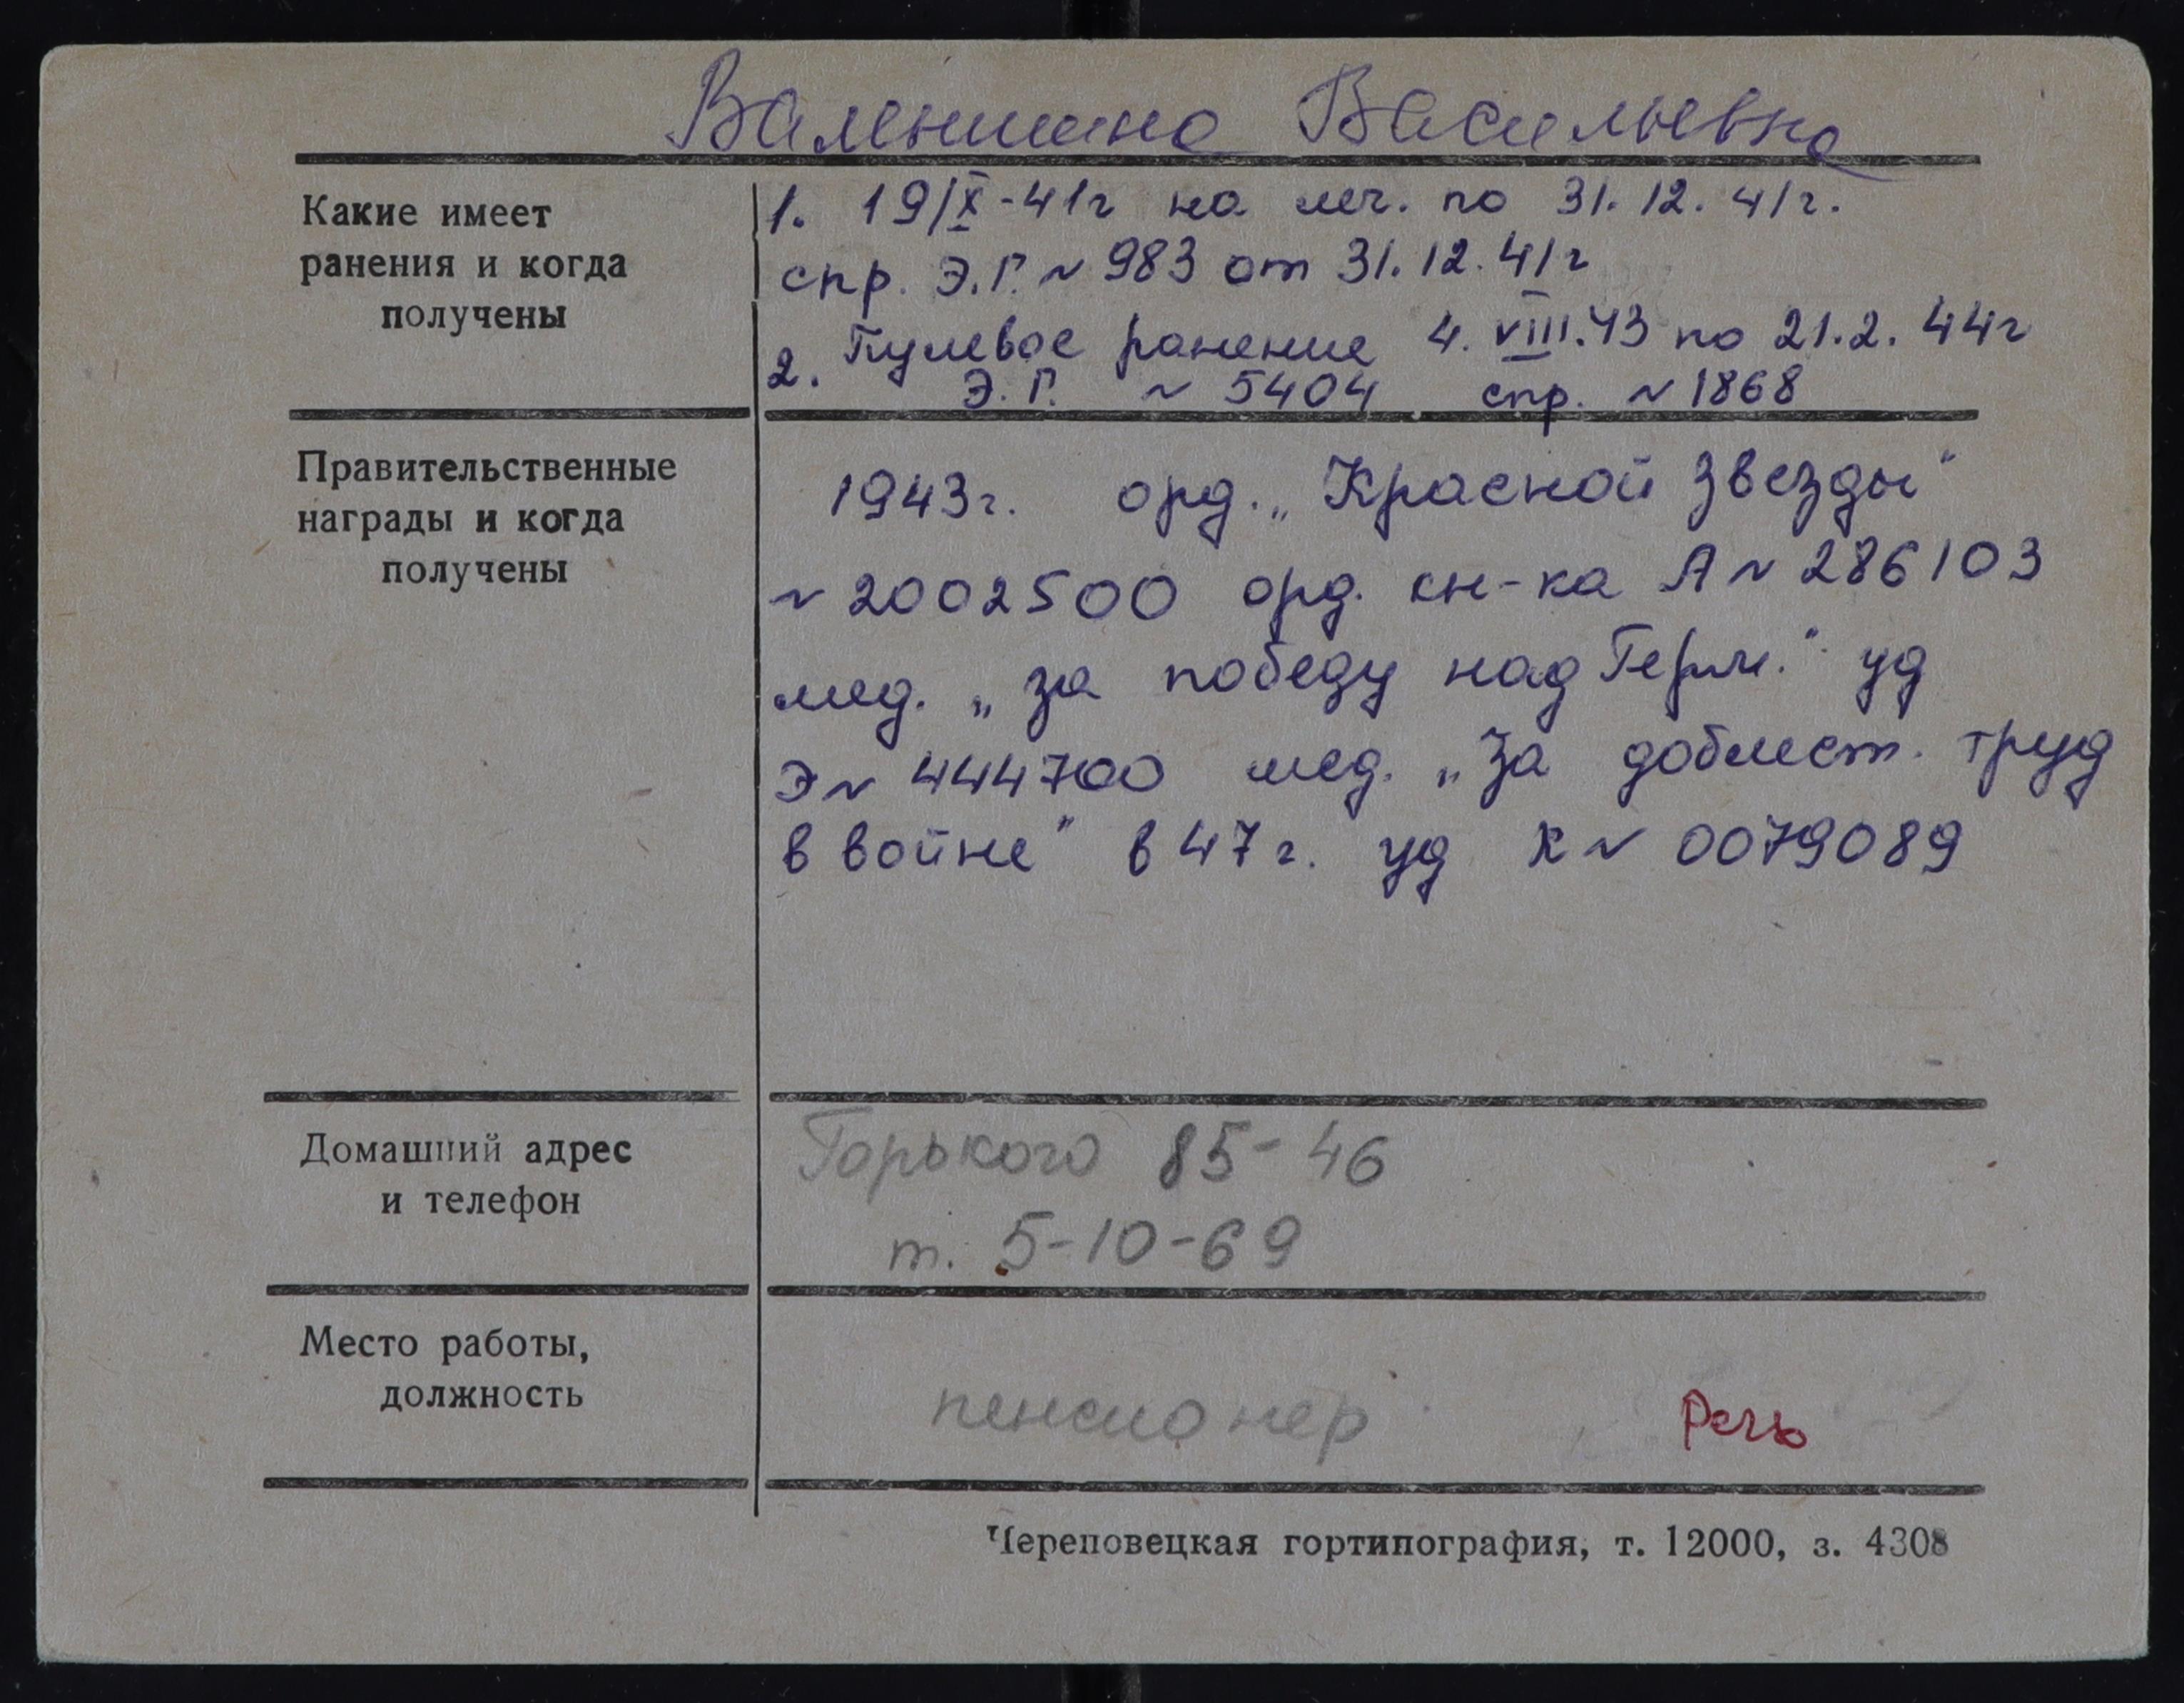 Валентина Васильевна
Какие имеет
ранения и когда
получены
1. 19/X-41г на леч. по 31.12.41г.
спр. Э.Г. № 983 от 31.12.41г
2. Пулевое ранение 4.VIII.43 по 21.2.44г
Э.Г. № 5404 спр. № 1868
Правительственные
награды и когда
получены
1943г. орд. „Красной Звезды"
№ 2002500 орд. кн-ка А № 286103
мед. „за победу над Герм." уд
Э № 444700 мед. „За доблест. труд
в войне" в 47г. уд К № 0079089
Домашний адрес
и телефон
Горького 85-46
т. 5-10-69
Место работы,
должность
пенсионер
Речь
Череповецкая гортипография, т. 12000, з. 4308